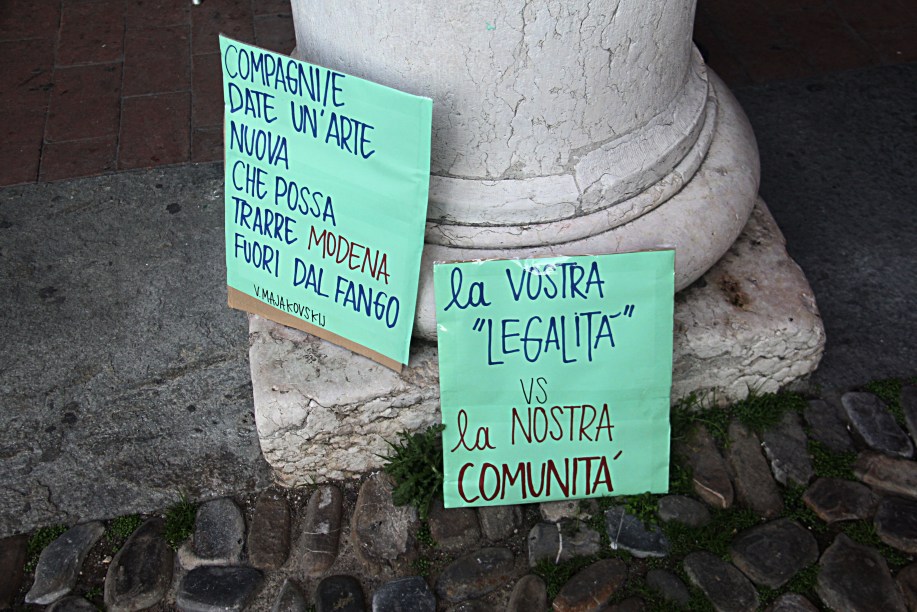 COMPAGNI/E
DATE UN'ARTE
NUOVA
CHE POSSA
TRARRE MODENA
FUORI DAL FANGO
V. MAJAKOVSKIJ
la VOSTRA
"LEGALITÀ"
VS
la NOSTRA
COMUNITÀ